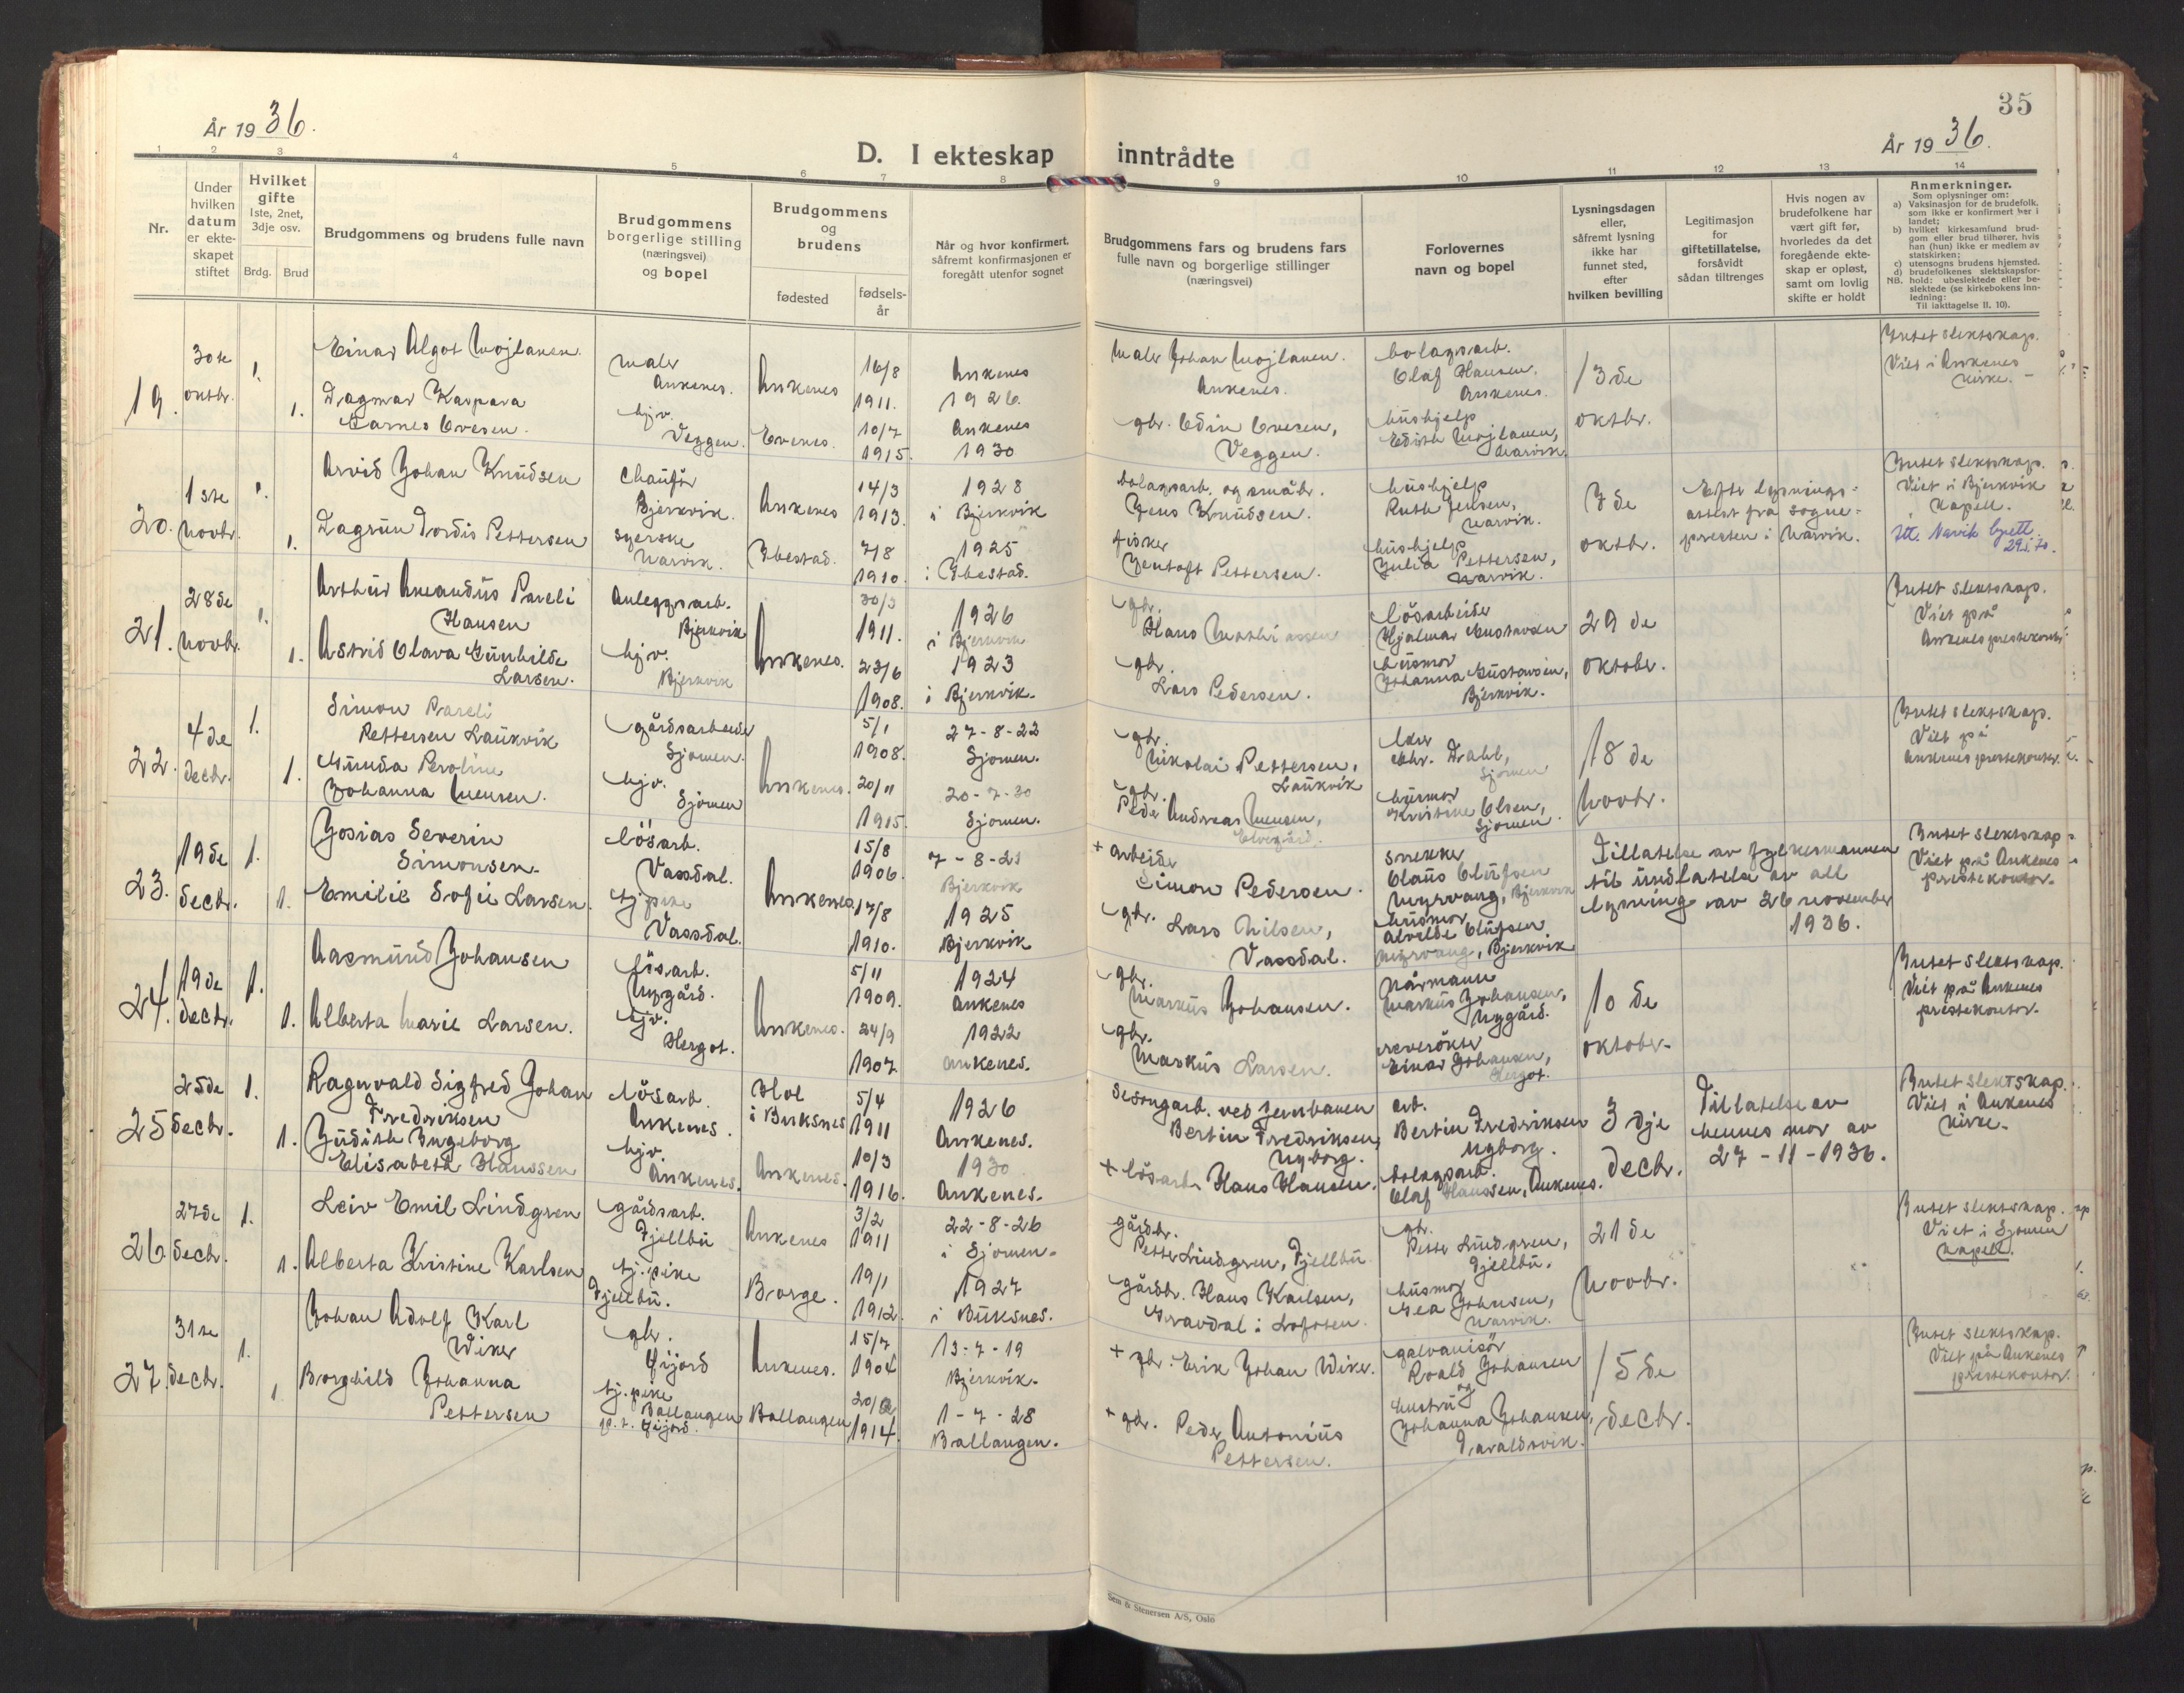 35
År 1936.
År 1936.
D. I ekteskap inntrådte
1 2 3 4 5 6 7 8 9 10 11 12 13 14
Nr.
Under hvilken datum er ekteskapet stiftet
Hvilket gifte 1ste, 2net, 3dje osv.
Brdg. Brud
Brudgommens og brudens fulle navn
Brudgommens borgerlige stilling (næringsvei) og bopel
Brudgommens og brudens
fødested
fødsels-år
Når og hvor konfirmert, såfremt konfirmasjonen er foregått utenfor sognet
Brudgommens fars og brudens fars fulle navn og borgerlige stillinger (næringsvei)
Forlovernes navn og bopel
Lysningsdagen eller, såfremt lysning ikke har funnet sted, efter hvilken bevilling
Legitimasjon for giftetillatelse, forsåvidt sådan tiltrenges
Hvis nogen av brudefolkene har vært gift før, hvorledes da det foregående ekteskap er opløst, samt om lovlig skifte er holdt
Anmerkninger.
Som oplysninger om:
a) Vaksinasjon for de brudefolk, som ikke er konfirmert her i landet;
b) hvilket kirkesamfund brudgom eller brud tilhører, hvis han (hun) ikke er medlem av statskirken;
c) utensogns brudens hjemsted.
d) brudefolkenes slektskapsforhold: ubeslektede eller beslektede (se kirkebokens innledning:
NB. Til iakttagelse II. 10).
19.
30te oktbr.
1.
Einar Algot Mojlanen
maler Ankenes.
Ankenes
16/8 1911.
Ankenes 1926.
Maler Johan Mojlanen. Ankenes.
bolagsarb. Olaf Hansen, Ankenes.
13de oktbr.
Intet slektskap. Viet i Ankenes kirke. -
1.
Dagmar Kaspara Carnes Ovesen.
hjv. Veggen.
Evenes.
10/7 1915.
Ankenes 1930
gbr. Edin Ovesen, Veggen.
hushjelp Edith Mojlanen, Narvik.
20.
1ste Novbr.
1.
Arvid Johan Knudsen
Chaufør Bjerkvik.
Ankenes
14/3 1913.
1928 i Bjerkvik
bolagsarb. og småbr. Jens Knudsen.
hushjelp Ruth Jensen, Narvik.
7de oktbr.
Efter lysnings-attest fra sogne-presten i Narvik.
Intet slektskap. Viet i Bjerkvik kapell.
Utt. Narvik
1.
Dagrun Tordis Pettersen
syerske Narvik.
Ibestad.
7/8 1910.
1925 i Ibestad.
fisker Jentoft Pettersen.
hushjelp Julia Pettersen, Narvik.
21.
28de Novbr.
1.
Arthur Amandus Pareli Hansen
Anleggsarb. Bjerkvik
Ankenes.
1911.
1926 i Bjerkvik
gbr. Hans Mathiassen
løsarbeider Hjalmar Gustavsen
29de oktober.
Intet slektskap. Viet på Ankenes prestekontor.
1.
Astrid Olava Gunhilde Larsen.
hjv. Bjerkvik
23/6 1908.
1923 i Bjerkvik.
gbr. Lars Pedersen.
husmor Johanna Gustavsen, Bjerkvik.
22.
4de decbr.
1.
Simon Pareli Pettersen Laukvik
gårdsarbeider Sjomen.
Ankenes.
5/1 1908.
27-8-22 Sjomen.
gbr. Nikolai Pettersen, Laukvik
lærer Chr. Dahl, Sjomen
18de Novbr.
Intet slektskap. Viet på Ankenes prestekontor.
1.
Gunda Peroline Johanna Monsen.
hjv. Sjomen
20/11 1915.
20-7-30 Sjomen.
gbr. Peder Andreas Monsen, Elvegård.
husmor Kristine Olsen, Sjomen.
23.
19de decbr.
1.
Josias Severin Simonsen.
løsarb. Vassdal.
Ankenes
15/8 1906.
7-8-21 Bjerkvik
+ arbeider Simon Pedersen.
snekker Olaus Olufsen Myrvang, Bjerkvik
Tillatelse av fylkesmannen til undlatelse av all lysning av 26 november 1936.
Intet slektskap Viet på Ankenes prestekontor.
1.
Emilie Sofie Larsen.
tj.pike Vassdal.
17/8 1910.
1925 Bjerkvik
gbr. Lars Nilsen, Vassdal.
husmor Alvilde Olufsen Myrvang, Bjerkvik
24.
19de decbr.
1.
Aasmund Johansen
løsarb. Nygård.
Ankenes.
5/11 1909.
1924 Ankenes
gbr. Markus Johansen.
Markus Johansen, Nygård.
10de oktober.
Intet slektskap. Viet på Ankenes prestekontor.
1.
Alberta Marie Larsen.
hjv. Hergot.
24/9 1907
1922 Ankenes.
gbr. Markus Larsen.
Einar Johansen, Hergot.
25
25de decbr.
1.
Ragnvald Sigfred Johan Fredriksen
løsarb. Ankenes.
Hol i Buksnes
5/4 1911
1926 Ankenes.
Sesongarb. ved Jernbanen Bertin Fredriksen, Nyborg.
arb. Bertin Fredriksen Nyborg.
3dje decbr.
Tillatelse av hennes mor av 27-11-1936.
Intet slektskap. Viet i Ankenes kirke.
1.
Judith Ingeborg Elisabeth Hanssen
hjv. Ankenes.
Ankenes.
10/3 1916.
1930 Ankenes.
+ løsarb. Hans Hansen.
bolagsarb. Olaf Hanssen, Ankenes.
26.
27de decbr.
1.
Leiv Emil Lindgren
gårdsarb. Fjellbu
Ankenes
3/2 1911
22-8-26 i Sjomen.
gårdbr. Petter Lindgren, Fjellbu
gbr. Petter Lindgren, Fjellbu.
21de Novbr.
Intet slektskap. Viet i Sjomen kapell.
1.
Alberta Kristine Karlsen
tj.pike Fjellbu.
Borge.
19/1 1912.
1927 i Buksnes.
gårdbr. Hans Karlsen, Gravdal i Lofoten.
husmor Gea Johnsen, Narvik.
27.
31te decbr.
1.
Johan Adolf Karl Wiker
gbr. Gijord
Ankenes.
15/7 1904
13-7-19 Bjerkvik.
+ gbr. Erik Johan Wiker.
galvanisør Roald Johansen og
15de decbr.
Intet slektskap. Viet på Ankenes prestekontor.
1.
Borghild Johanna Pettersen
tj.pike Ballangen p.t. Gijord.
Ballangen
1914.
1-7-28 Ballangen.
+ gbr. Peder Antonius Pettersen.
hustru Johanna Johansen, Taraldsvik.
Sem & Stenersen A/S, Oslo